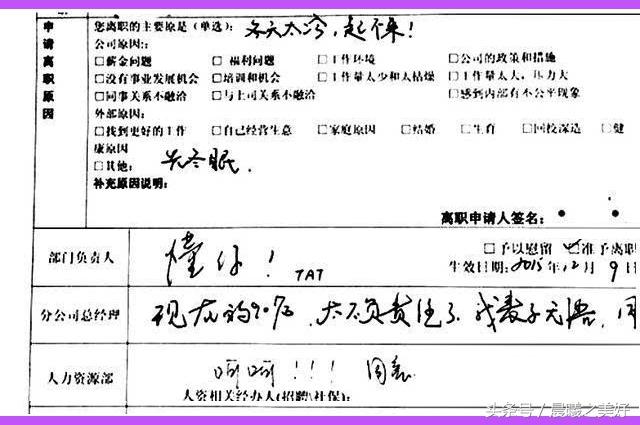 申请离职原因
您离职的主要原是（单选）： 冬天太冷，起不来！
公司原因：：
□薪金问题 □ 福利问题 □工作环境 □公司的政策和措施
□没有事业发展机会 □培训和机会 □工作量太少和太枯燥 □工作量太大，压力大
□同事关系不融洽 □与上司关系不融洽 □感到内部有不公平现象
外部原因：
□找到更好的工作 □自己经营生意 □家庭原因 □结婚 □生育 □回校深造 □健
康原因
□其他： 先冬眠.
补充原因说明：
离职申请人签名：
部门负责人 懂你！ TAT □予以慰留 ☑准予离职
生效日期：2015年12月9日
分公司总经理 现在的90后，太不负责任了.我表示无语，同
人力资源部 呵呵！！！ 同意
人资相关经办人(招聘\社保)：
头条号／晨曦之美好